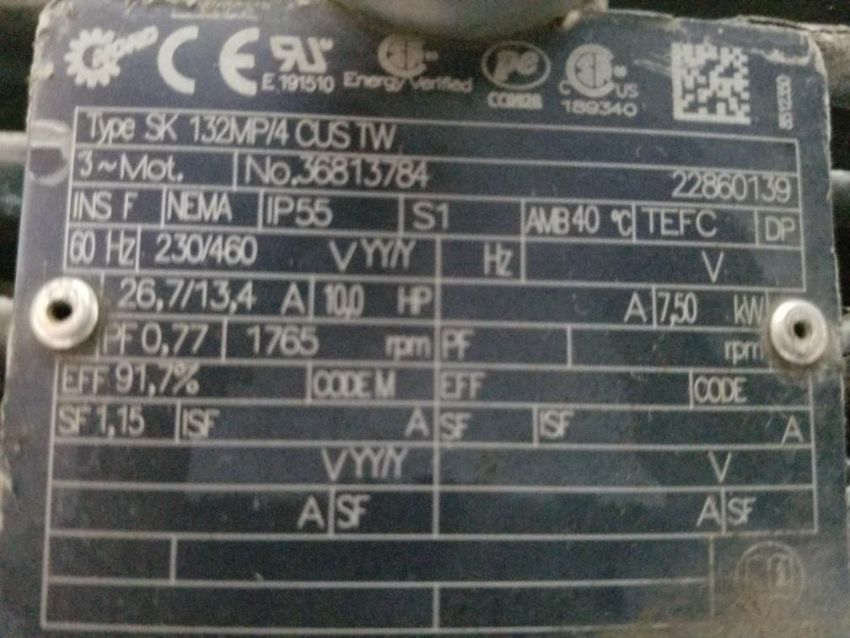 NORD CE UR Energy Verified pe C US
E 191510 CC092B 189340
8512350
Type SK 132MP/4 CUS TW
3~Mot. No.36813784 22860139
INS F NEMA IP55 S1 AMB 40 °C TEFC DP
60 Hz 230/460 V YY/Y Hz V
26,7/13,4 A 10,0 HP A 7,50 kW
PF 0,77 1765 rpm PF rpm
EFF 91,7% CODE M EFF CODE
SF 1,15 ISF A SF ISF A
V YY/Y V
A SF A SF